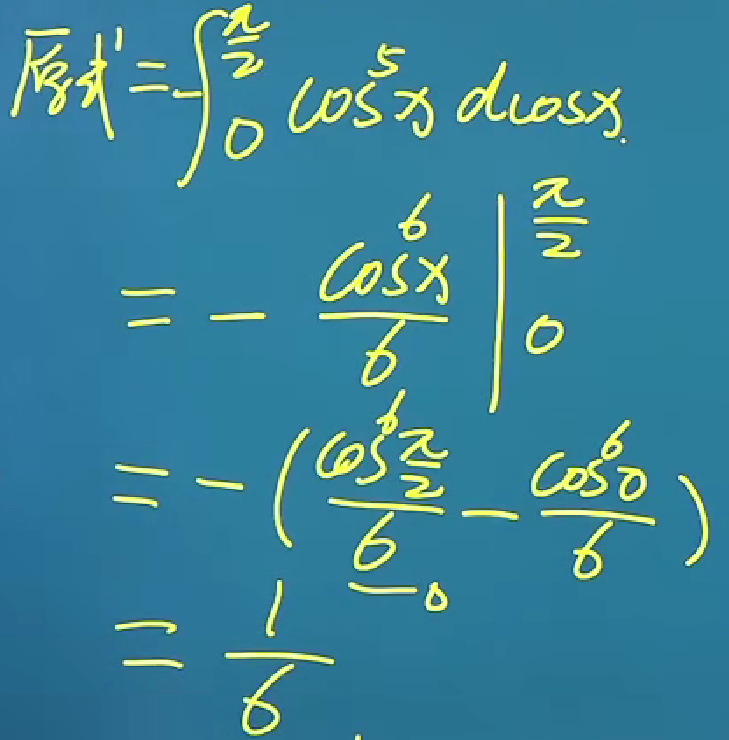 原式 = -∫_0^{π/2} cos^5 x dcosx.
= - cos^6 x / 6 |_0^{π/2}
= - ( cos^6 π/2 / 6 - cos^6 0 / 6 )
0
= 1/6